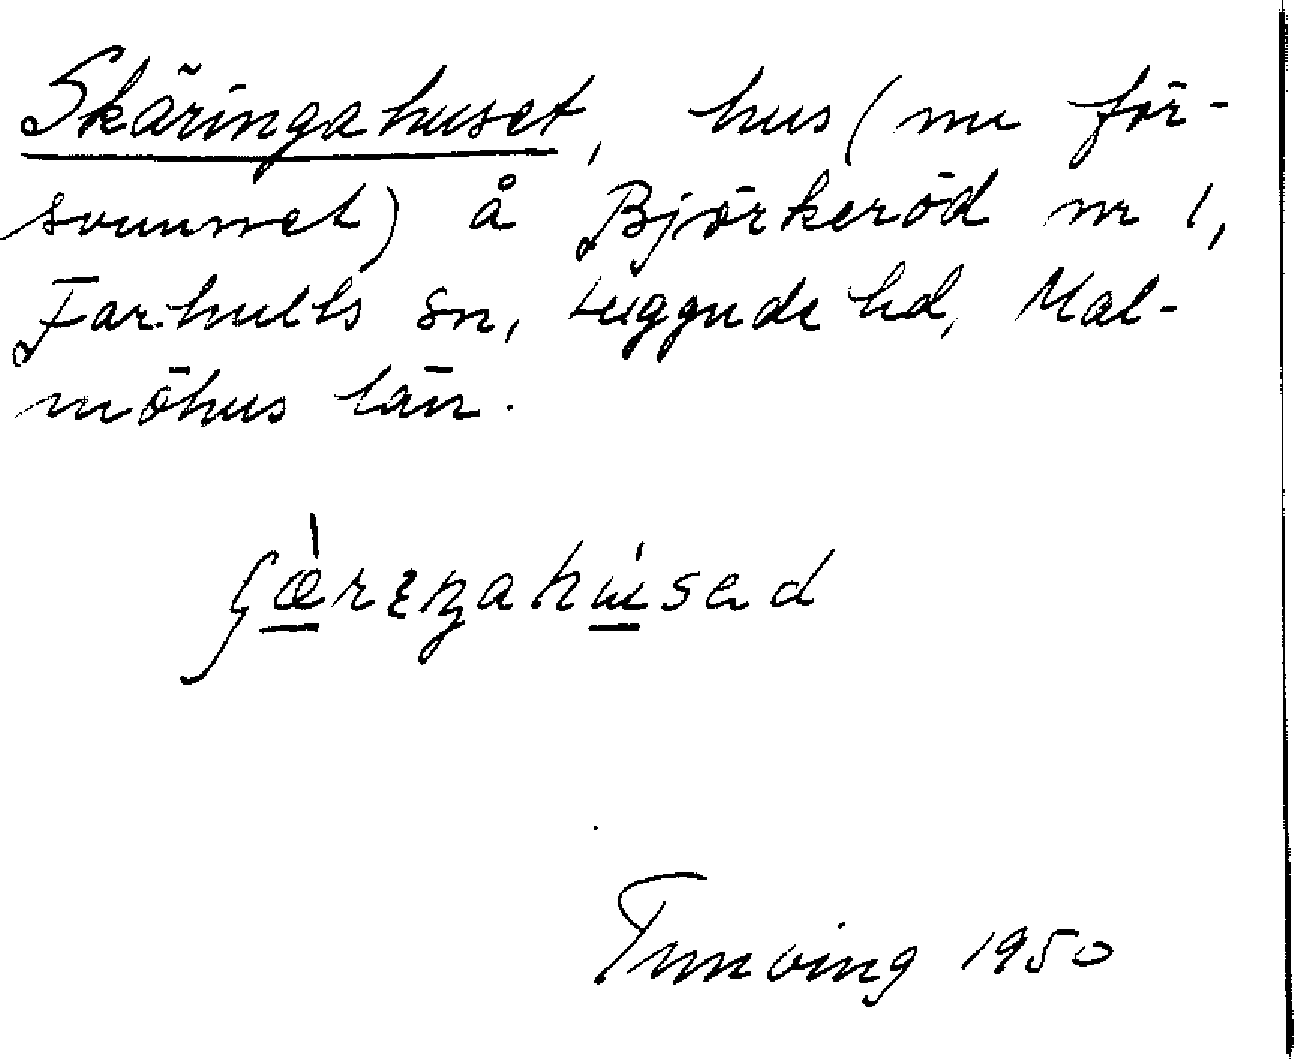 Skäringahuset, hus (nu för-
svunnet) å Björkeröd nr 1,
Farhults sn, Luggude hd, Mal-
möhus län.
1950